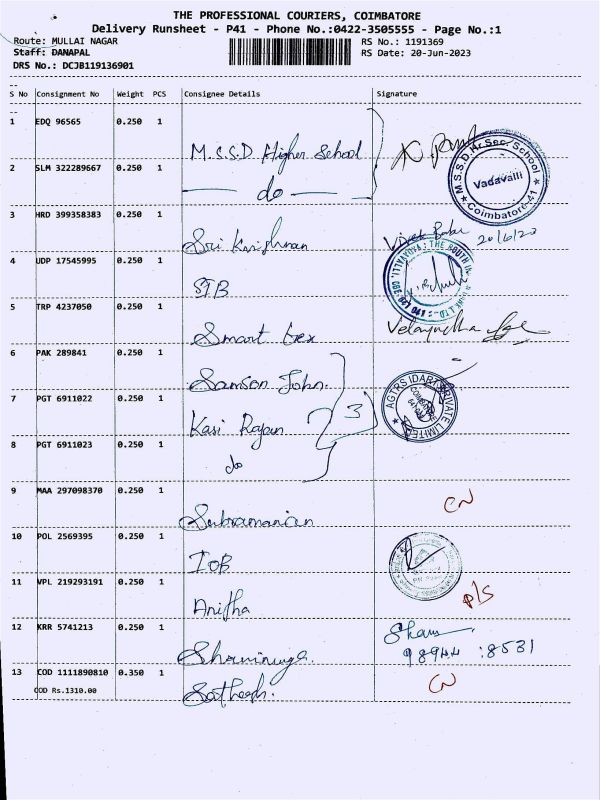 THE PROFESSIONAL COURIERS, COIMBATORE
Delivery Runsheet - P41 - Phone No.:0422-3505555 - Page No.:1
Route: MULLAI NAGAR RS No.: 1191369
Staff: DANAPAL RS Date: 20-Jun-2023
DRS No.: DCJB119136901
S No Consignment No Weight PCS Consignee Details Signature
1 EDQ 96565 0.250 1
M.S.S.D. Higher School
M.S.S.D.Hr.Sec. School
Vadavalli
Coimbatore-41
2 SLM 322289667 0.250 1
do
3 HRD 399358383 0.250 1
Sri Krishnan
20/6/23
4 UDP 17545995 0.250 1
SIB
5 TRP 4237050 0.250 1
Smart tex Velayudha
6 PAK 289841 0.250 1
Samson John.
7 PGT 6911022 0.250 1
Kasi Rajan 3
AGTRS IDART PRIVATE LIMITED
8 PGT 6911023 0.250 1
do
9 MAA 297098370 0.250 1
Subramanian
10 POL 2569395 0.250 1
IOB
11 VPL 219293191 0.250 1
Anitha P/S
12 KRR 5741213 0.250 1
Sham
98944 :8531
13 COD 1111890810 0.350 1
COD Rs.1310.00
Sathesh.